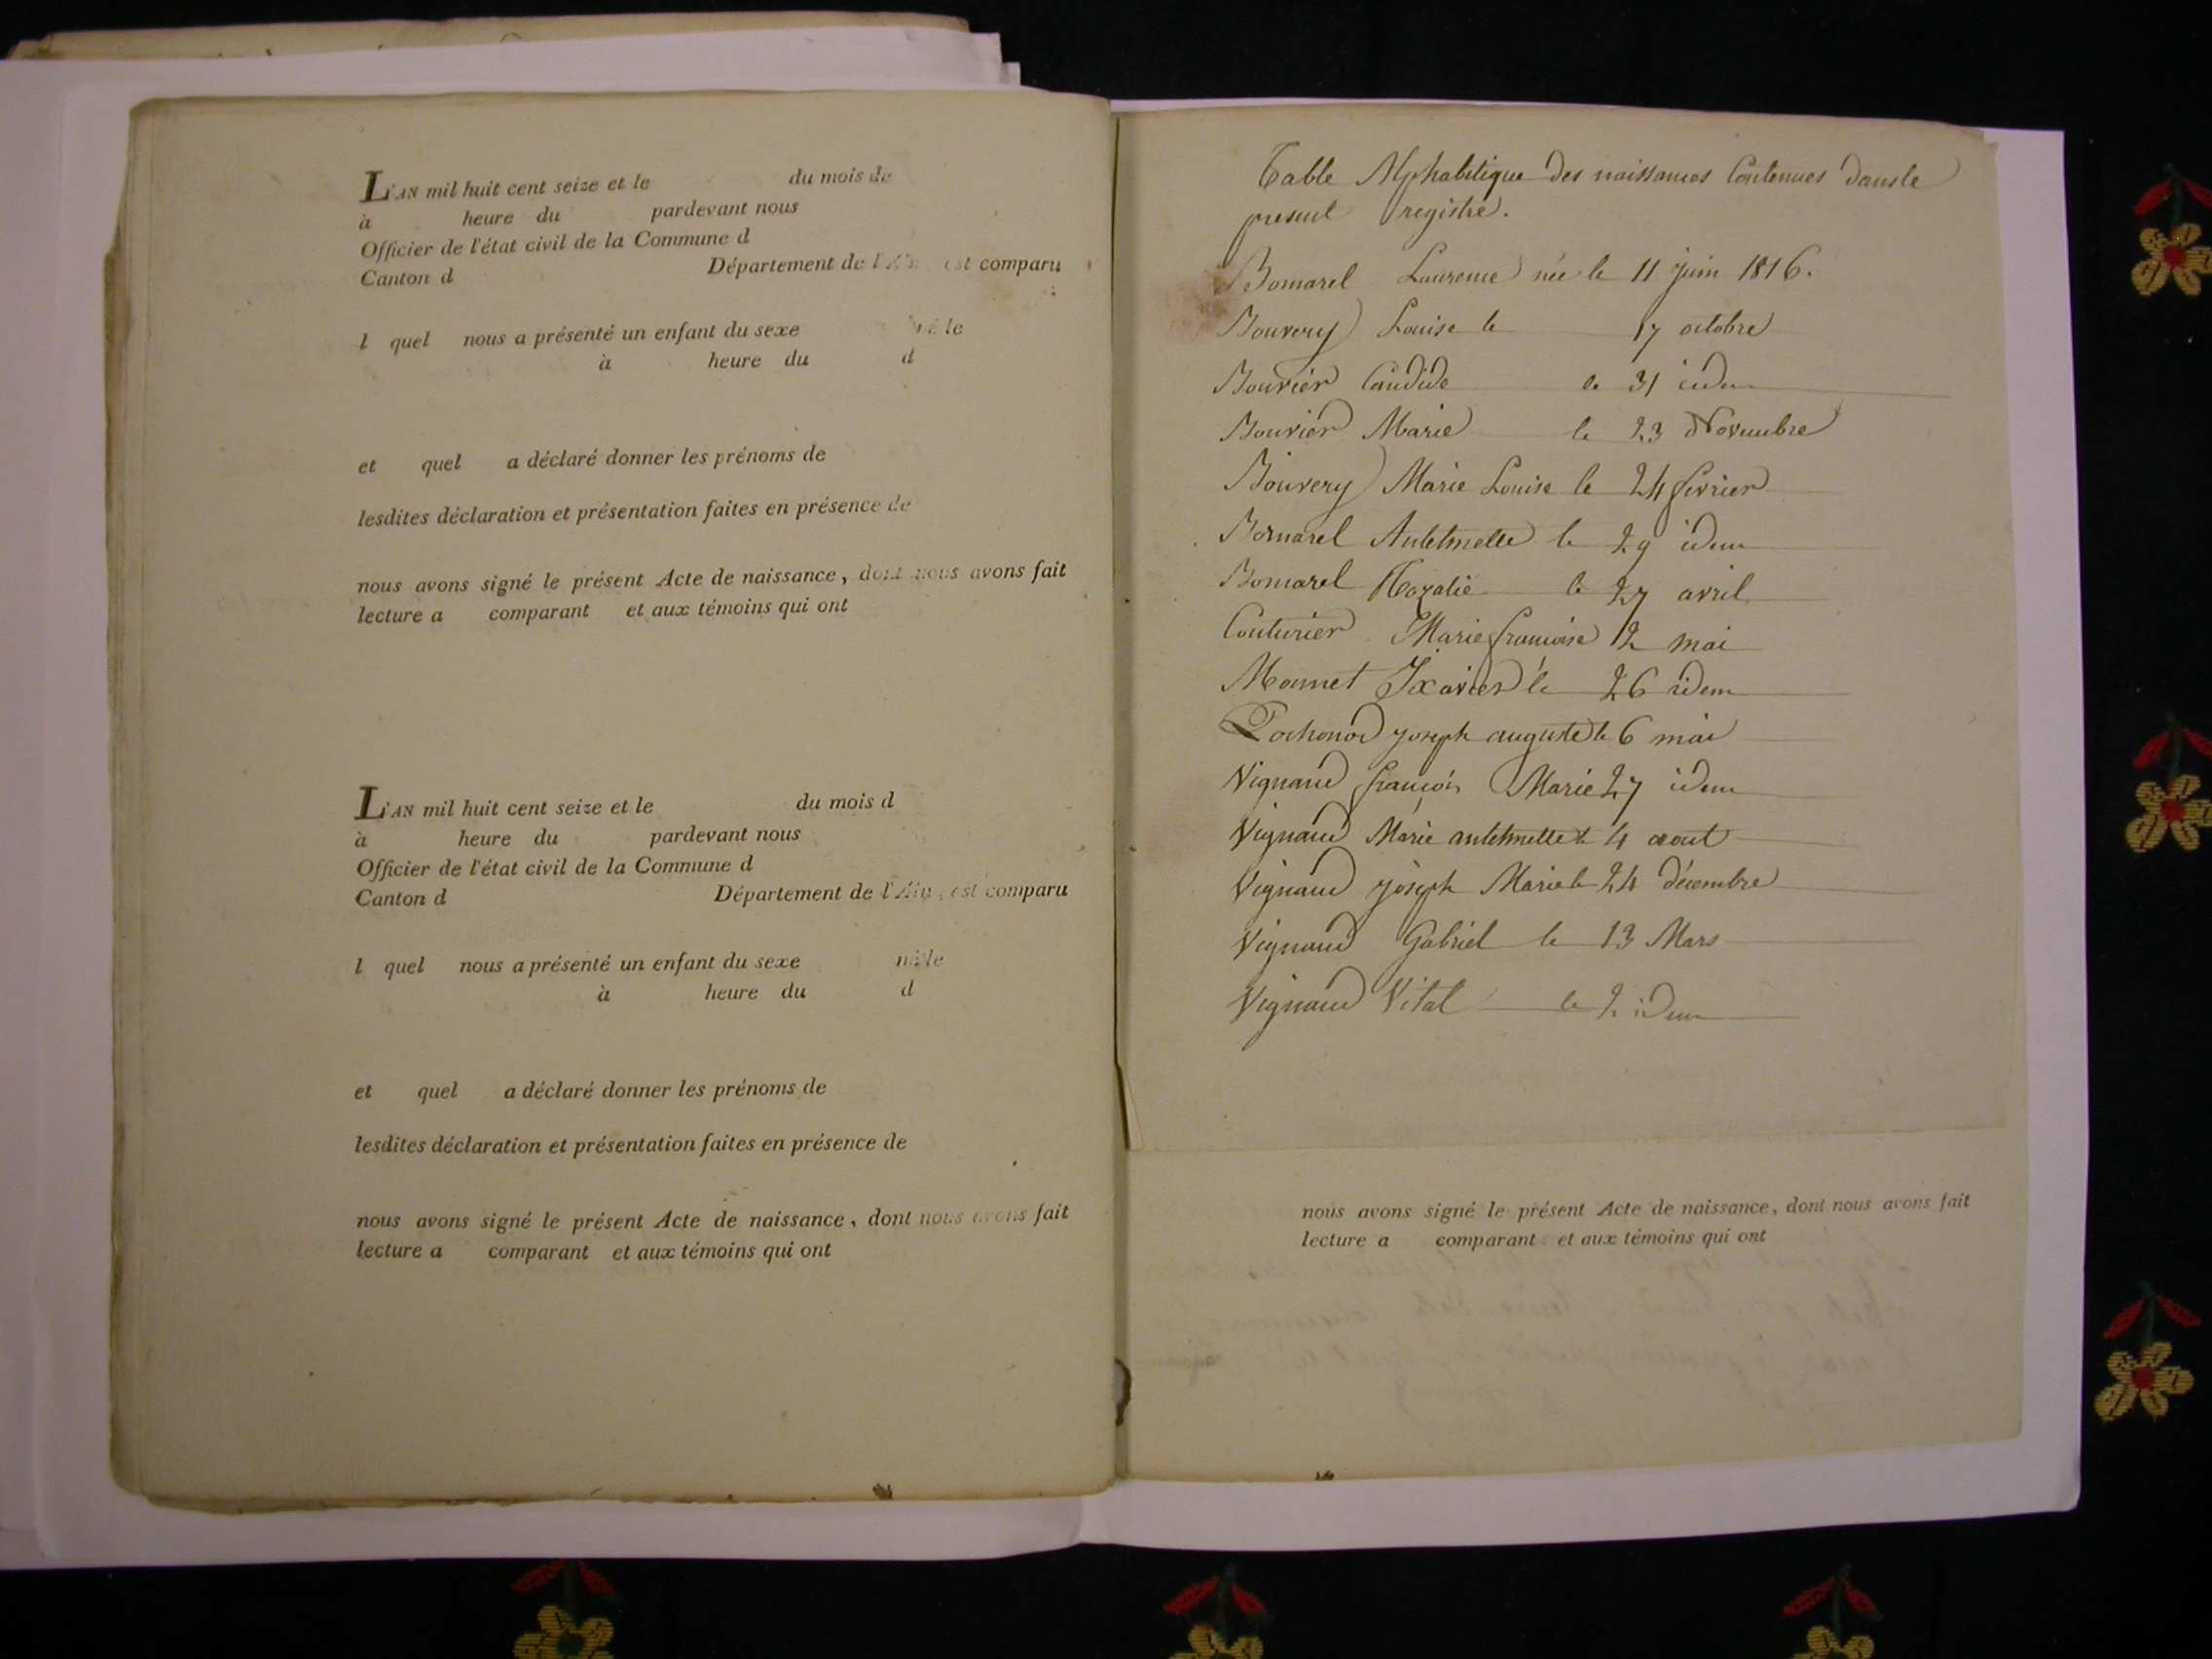 L'AN mil huit cent seize et le du mois de
à heure du pardevant nous
Officier de l'état civil de la Commune d
Canton d Département de l'Ain, est comparu
l quel nous a présenté un enfant du sexe né le
à heure du d
et quel a déclaré donner les prénoms de
lesdites déclaration et présentation faites en présence de
nous avons signé le présent Acte de naissance, dont nous avons fait
lecture a comparant et aux témoins qui ont
L'AN mil huit cent seize et le du mois d
à heure du pardevant nous
Officier de l'état civil de la Commune d
Canton d Département de l'Ain, est comparu
l quel nous a présenté un enfant du sexe né le
à heure du d
et quel a déclaré donner les prénoms de
lesdites déclaration et présentation faites en présence de
nous avons signé le présent Acte de naissance, dont nous avons fait
lecture a comparant et aux témoins qui ont
Table Alphabetique des naissances Contenues dans le
present registre.
Bornarel Laurence née le 11 juin 1816.
Bouvery Louise le 17 octobre
Bouvier Candide le 31 idem
Bouvier Marie le 23 Novembre
Bouvery Marie Louise le 24 fevrier
Bornarel Antelmette le 29 idem
Bornarel Rozalie le 27 avril
Couturier Marie françoise 2 mai
Monnet Xavier le 26 idem
Pochonod joseph auguste le 6 mai
Vignand françois Marie 27 idem
Vignand Marie antelmette le 4 aout
Vignand joseph Marie le 24 décembre
Vignand Gabriel le 13 Mars
Vignand Vital le 2 idem
nous avons signé le présent Acte de naissance, dont nous avons fait
lecture a comparant et aux témoins qui ont